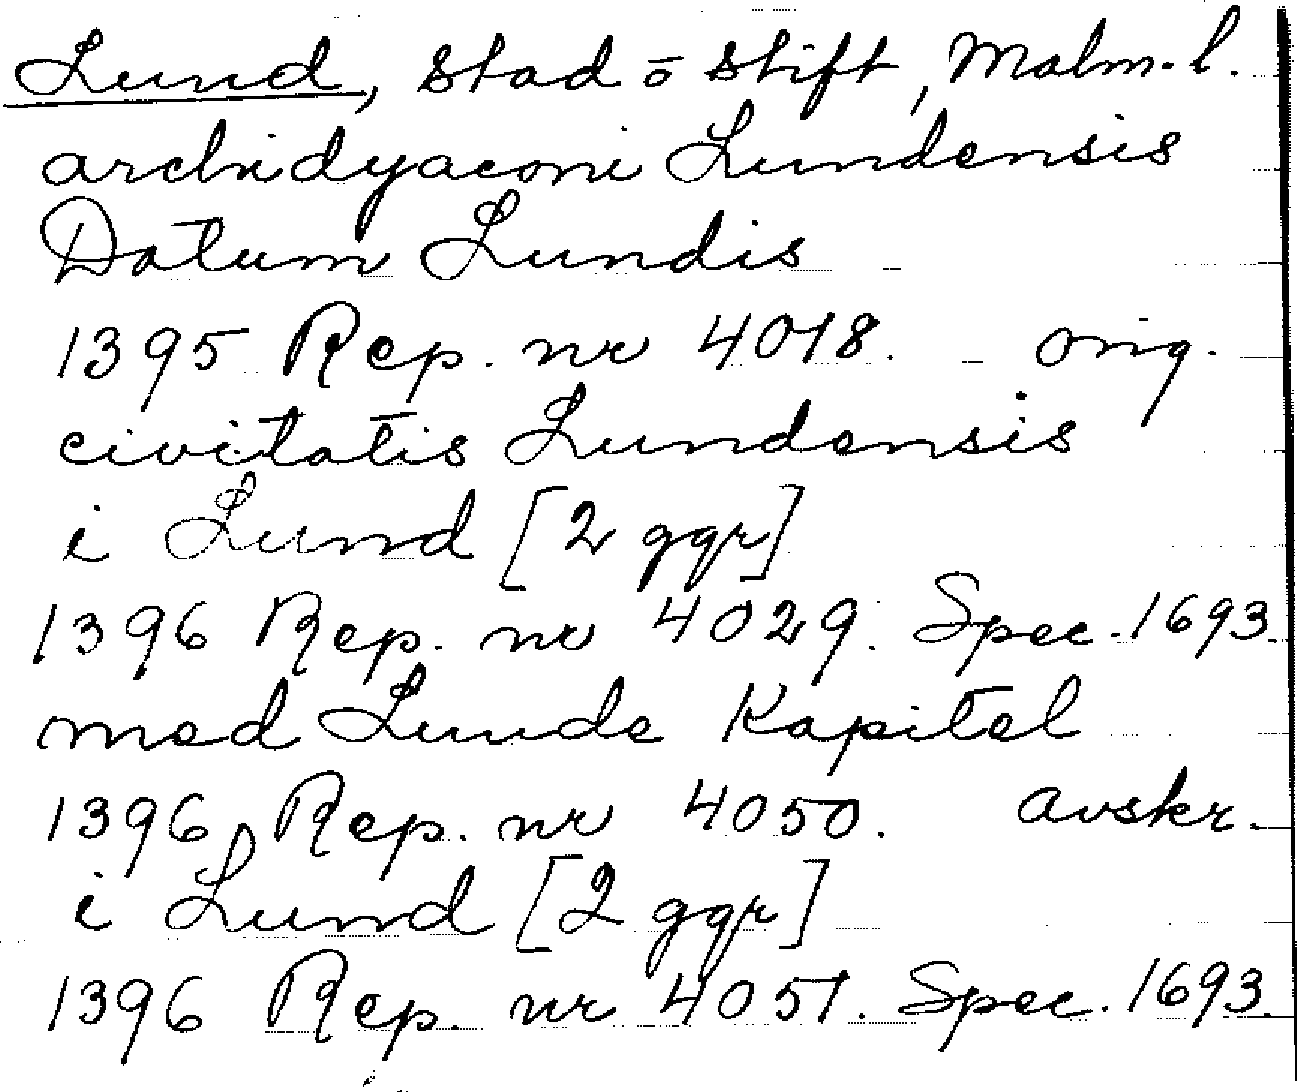 Lund, stad o stift, Malm. l.
archidyaconi Lundensis
Datum Lundis
1395 Rep. nr 4018. orig.
civitatis Lundensis
i Lund [2 ggr]
1396 Rep. nr 4029. Spec. 1693.
med Lunde Kapitel
1396 Rep. nr 4050. avskr.
i Lund [2 ggr]
1396 Rep. nr 4051. Spec. 1693.